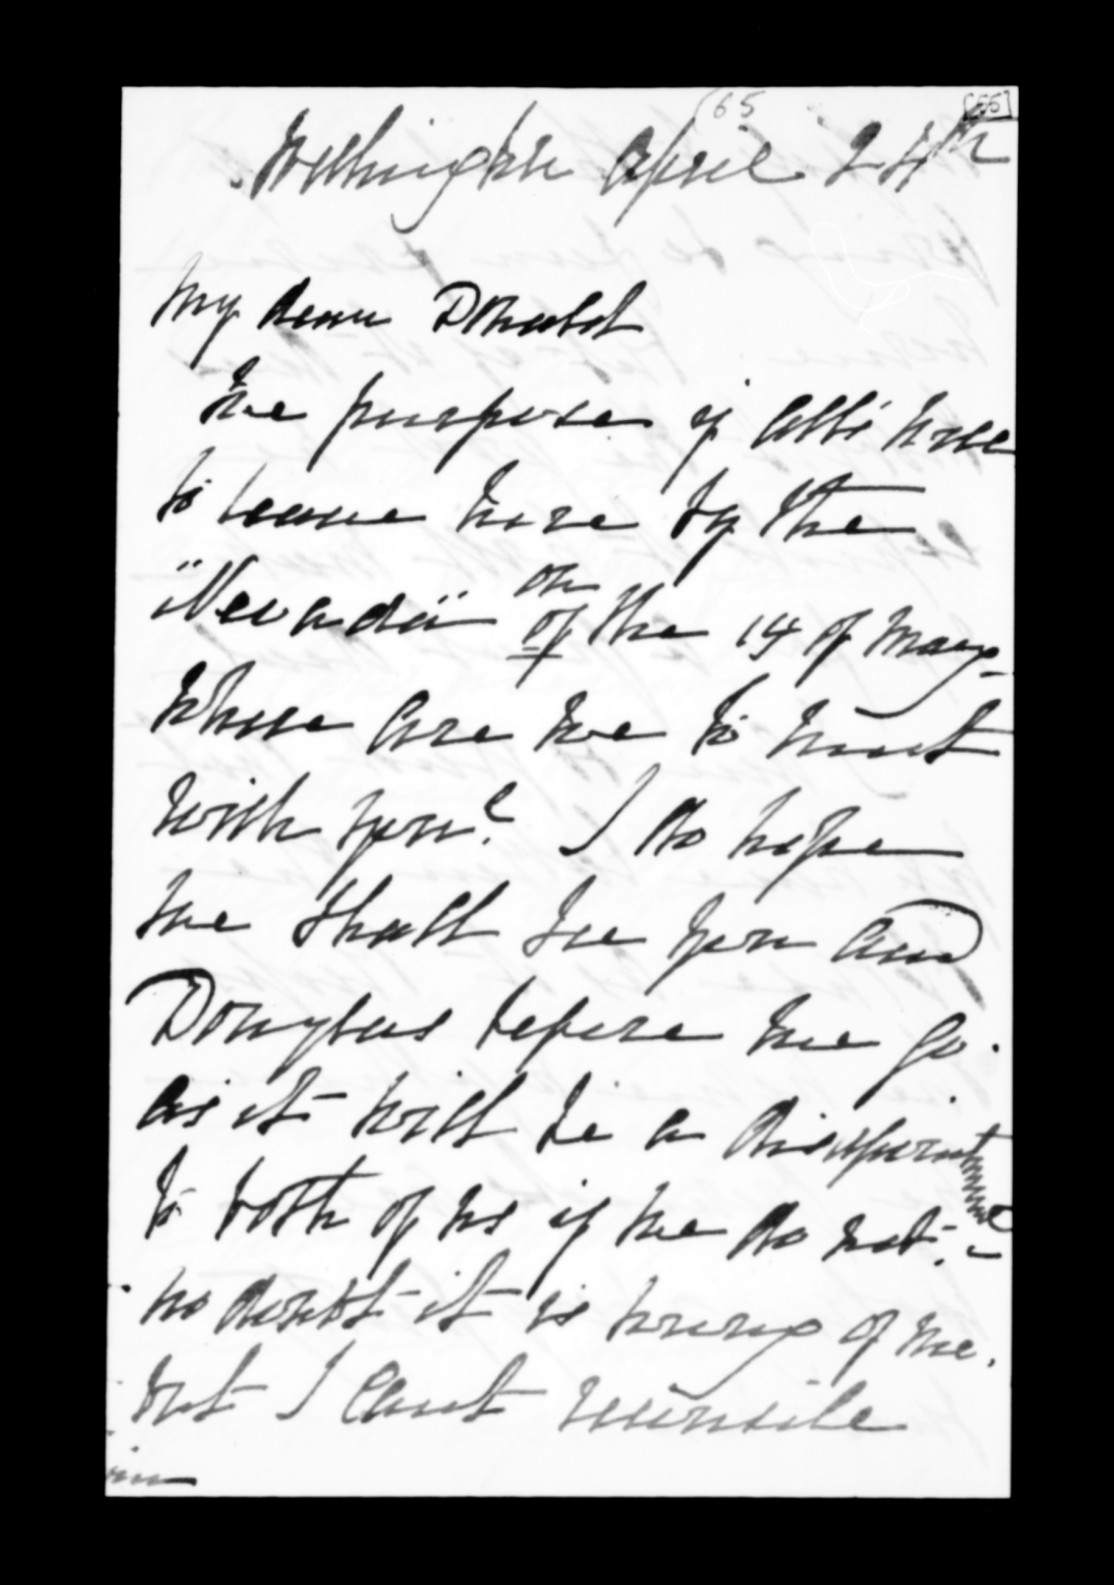 (65
[55]
Wellington April 24th
My dear Donald
We purpose if all's well
to leave here by the
"Nevada" on of the 14 of May
where are we to meet
with you? I do hope
we shall see you and
Douglas before we go.
as it will be a disappointment
to both of us if we do not. -
no doubt it is wrong of me.
but I cant reconcile